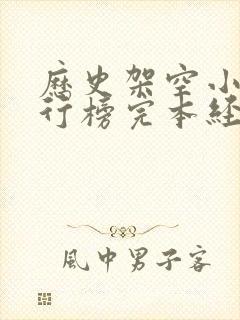 歷史架空小
行榜完本經
風中男子客